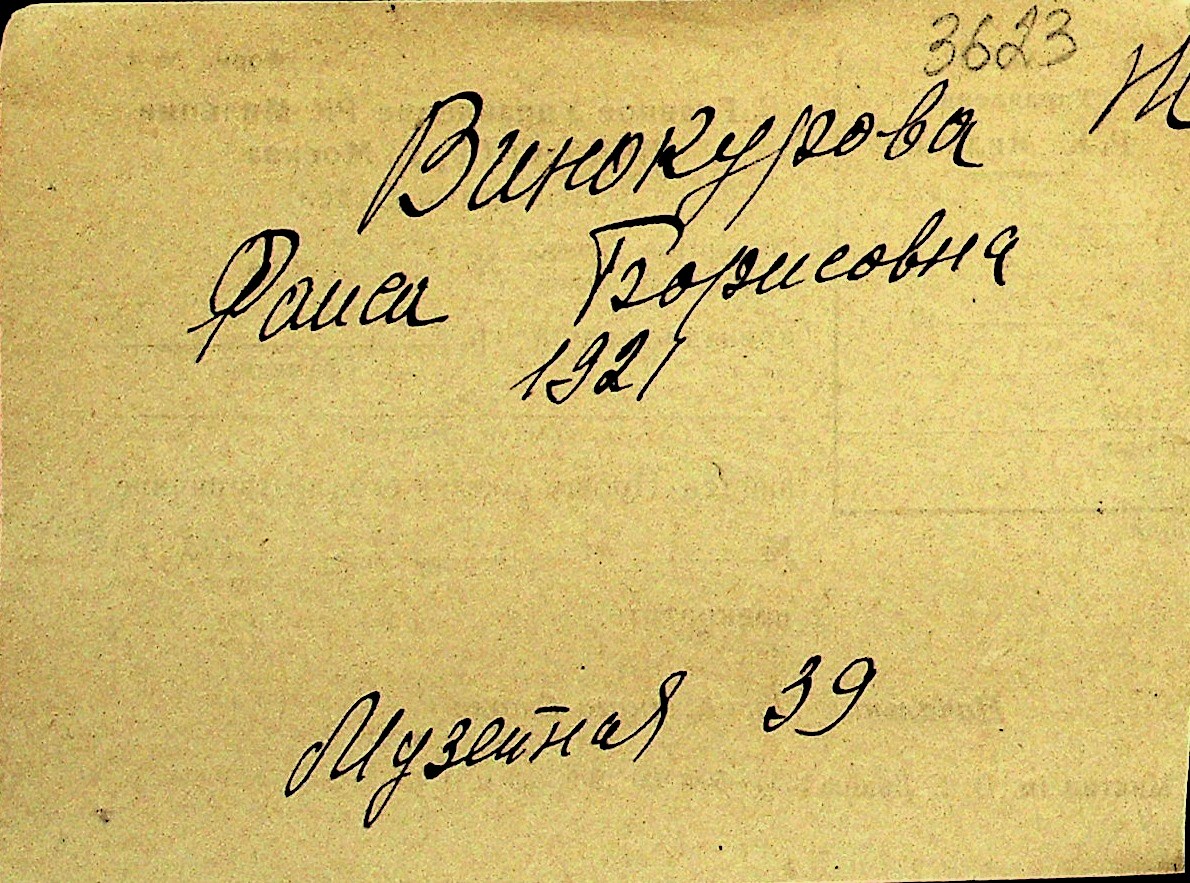 3623
Винокурова
Раиса Борисовна
1921
Музейная 39